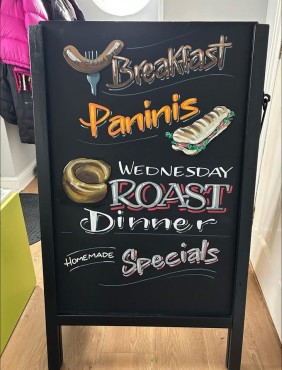 Breakfast
Paninis
WEDNESDAY
ROAST
Dinner
HOMEMADE Specials